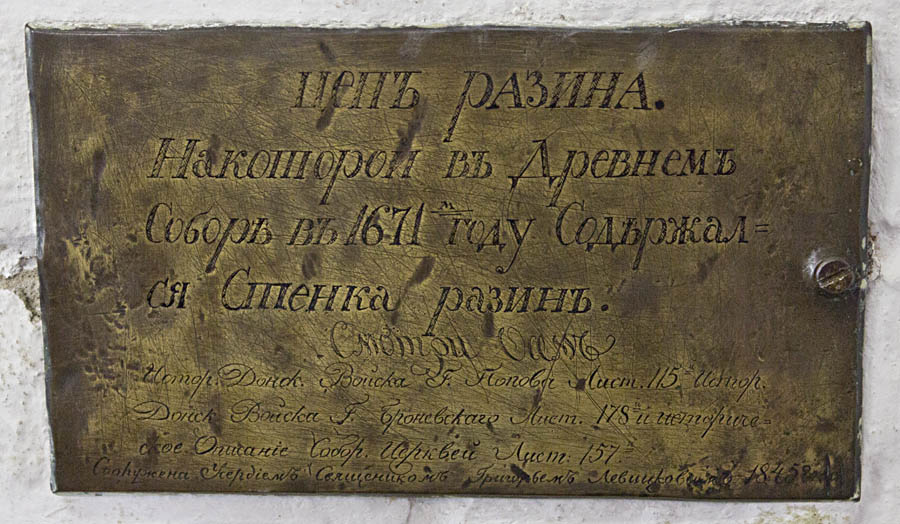 цепъ разина.
Накоторои въ Древнемъ
Соборѣ въ 1671м году Содѣржал=
ся Стенка разинъ.
Смотри
Истор. Донск. Войска Г. Попова Лист. 115й Истор.
Донск Войска Г. Броневскаго Лист. 178й и историче=
ское Описаніе Собор. Церквей Лист: 157й
Сооружена Священиком Григорьемъ Левицкимъ 1845